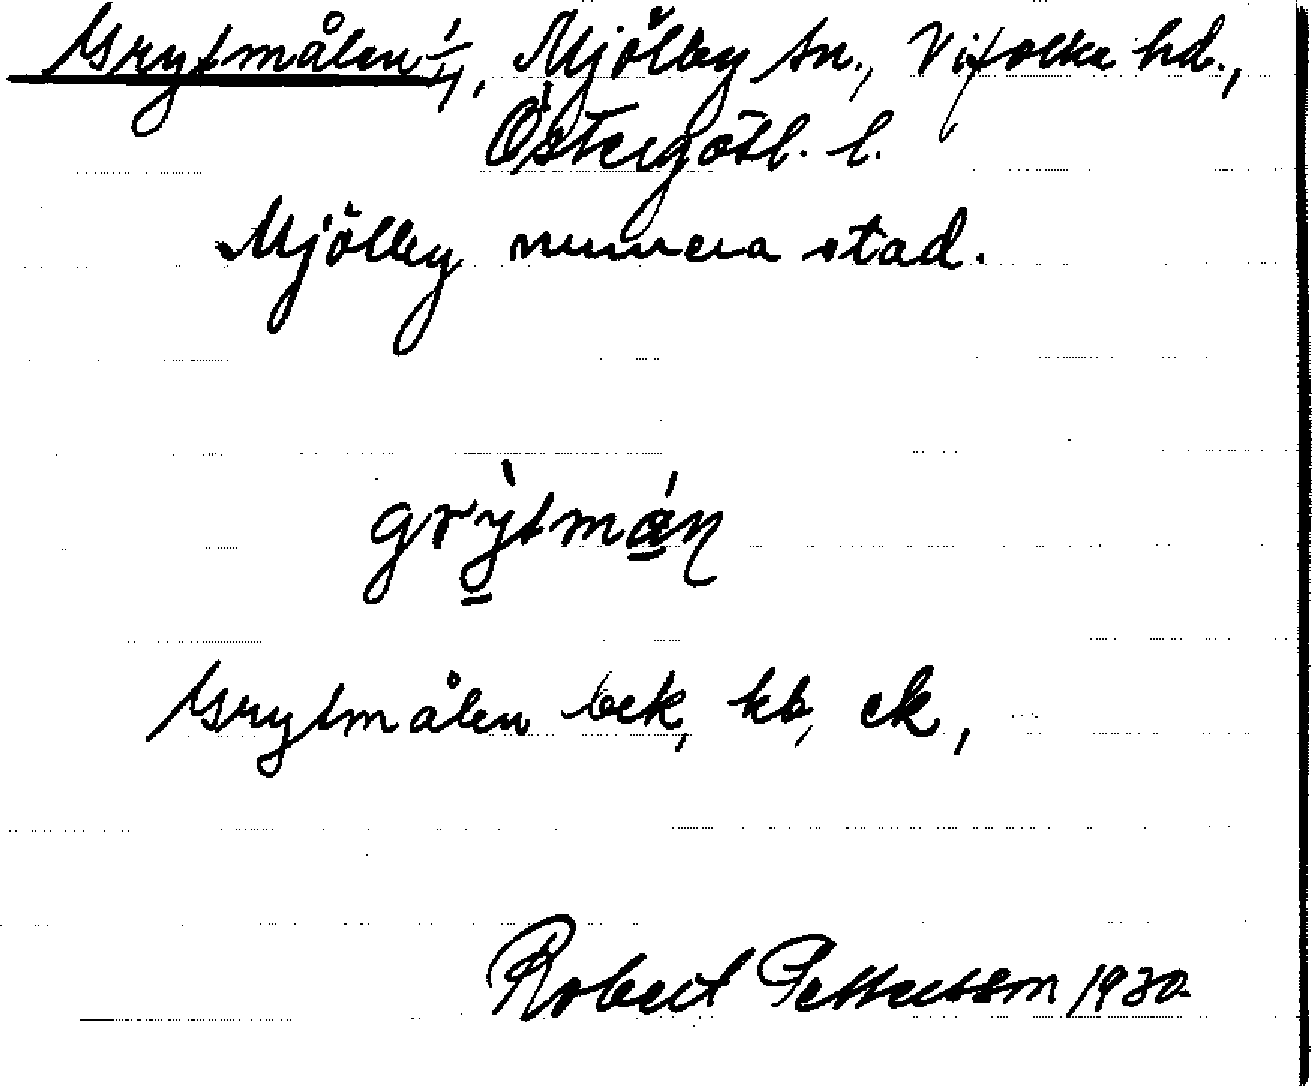 Grytmålen 1/4, Mjölby sn., Vifolka hd.,
Östergötl. l.
Mjölby numera stad.
grỳtmán
Grytmålen bek, kb, ek,
Robert Pettersson 1930